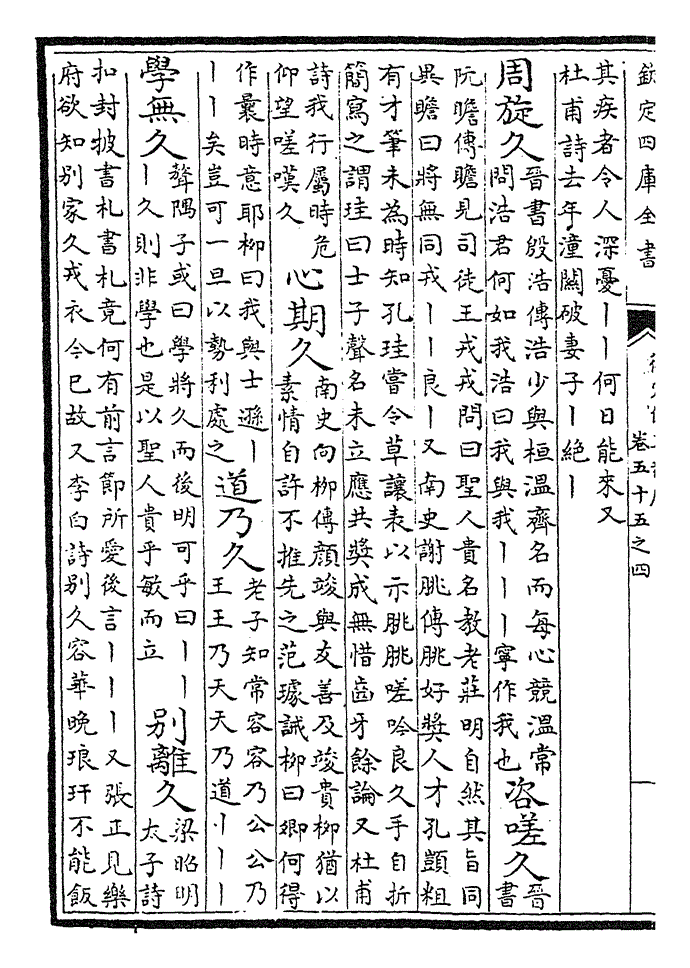 欽定四庫全書
卷五十五之四
其疾者令人深憂丨丨何日能來又
杜甫詩去年潼關破妻子丨絶丨
周旋久
晉書殷浩傳浩少與桓溫齊名而每心競溫常
問浩君何如我浩曰我與我丨丨丨寧作我也
咨嗟久
晉
書
阮瞻傳瞻見司徒王戎戎問曰聖人貴名教老莊明自然其旨同
異瞻曰將無同戎丨丨良丨又南史謝朓傳朓好奬人才孔顗粗
有才筆未為時知孔珪嘗令草讓表以示朓朓嗟吟良久手自折
簡寫之謂珪曰士子聲名未立應共奬成無惜齒牙餘論又杜甫
詩我行屬時危
仰望嗟嘆久
心期久
南史向柳傳顔竣與友善及竣貴柳猶以
素情自許不推先之范璩誡柳曰卿何得
作曩時意耶柳曰我與士遜丨
丨丨矣豈可一旦以勢利處之
道乃久
老子知常容容乃公公乃
王王乃天天乃道丨丨丨
學無久
聱隅子或曰學將久而後明可乎曰丨丨
丨久則非學也是以聖人貴乎敏而立
別離久
梁昭明
太子詩
扣封披書札書札竟何有前言節所愛後言丨丨丨又張正見樂
府欲知別家久戎衣今已故又李白詩別久容華晚琅玕不能飯